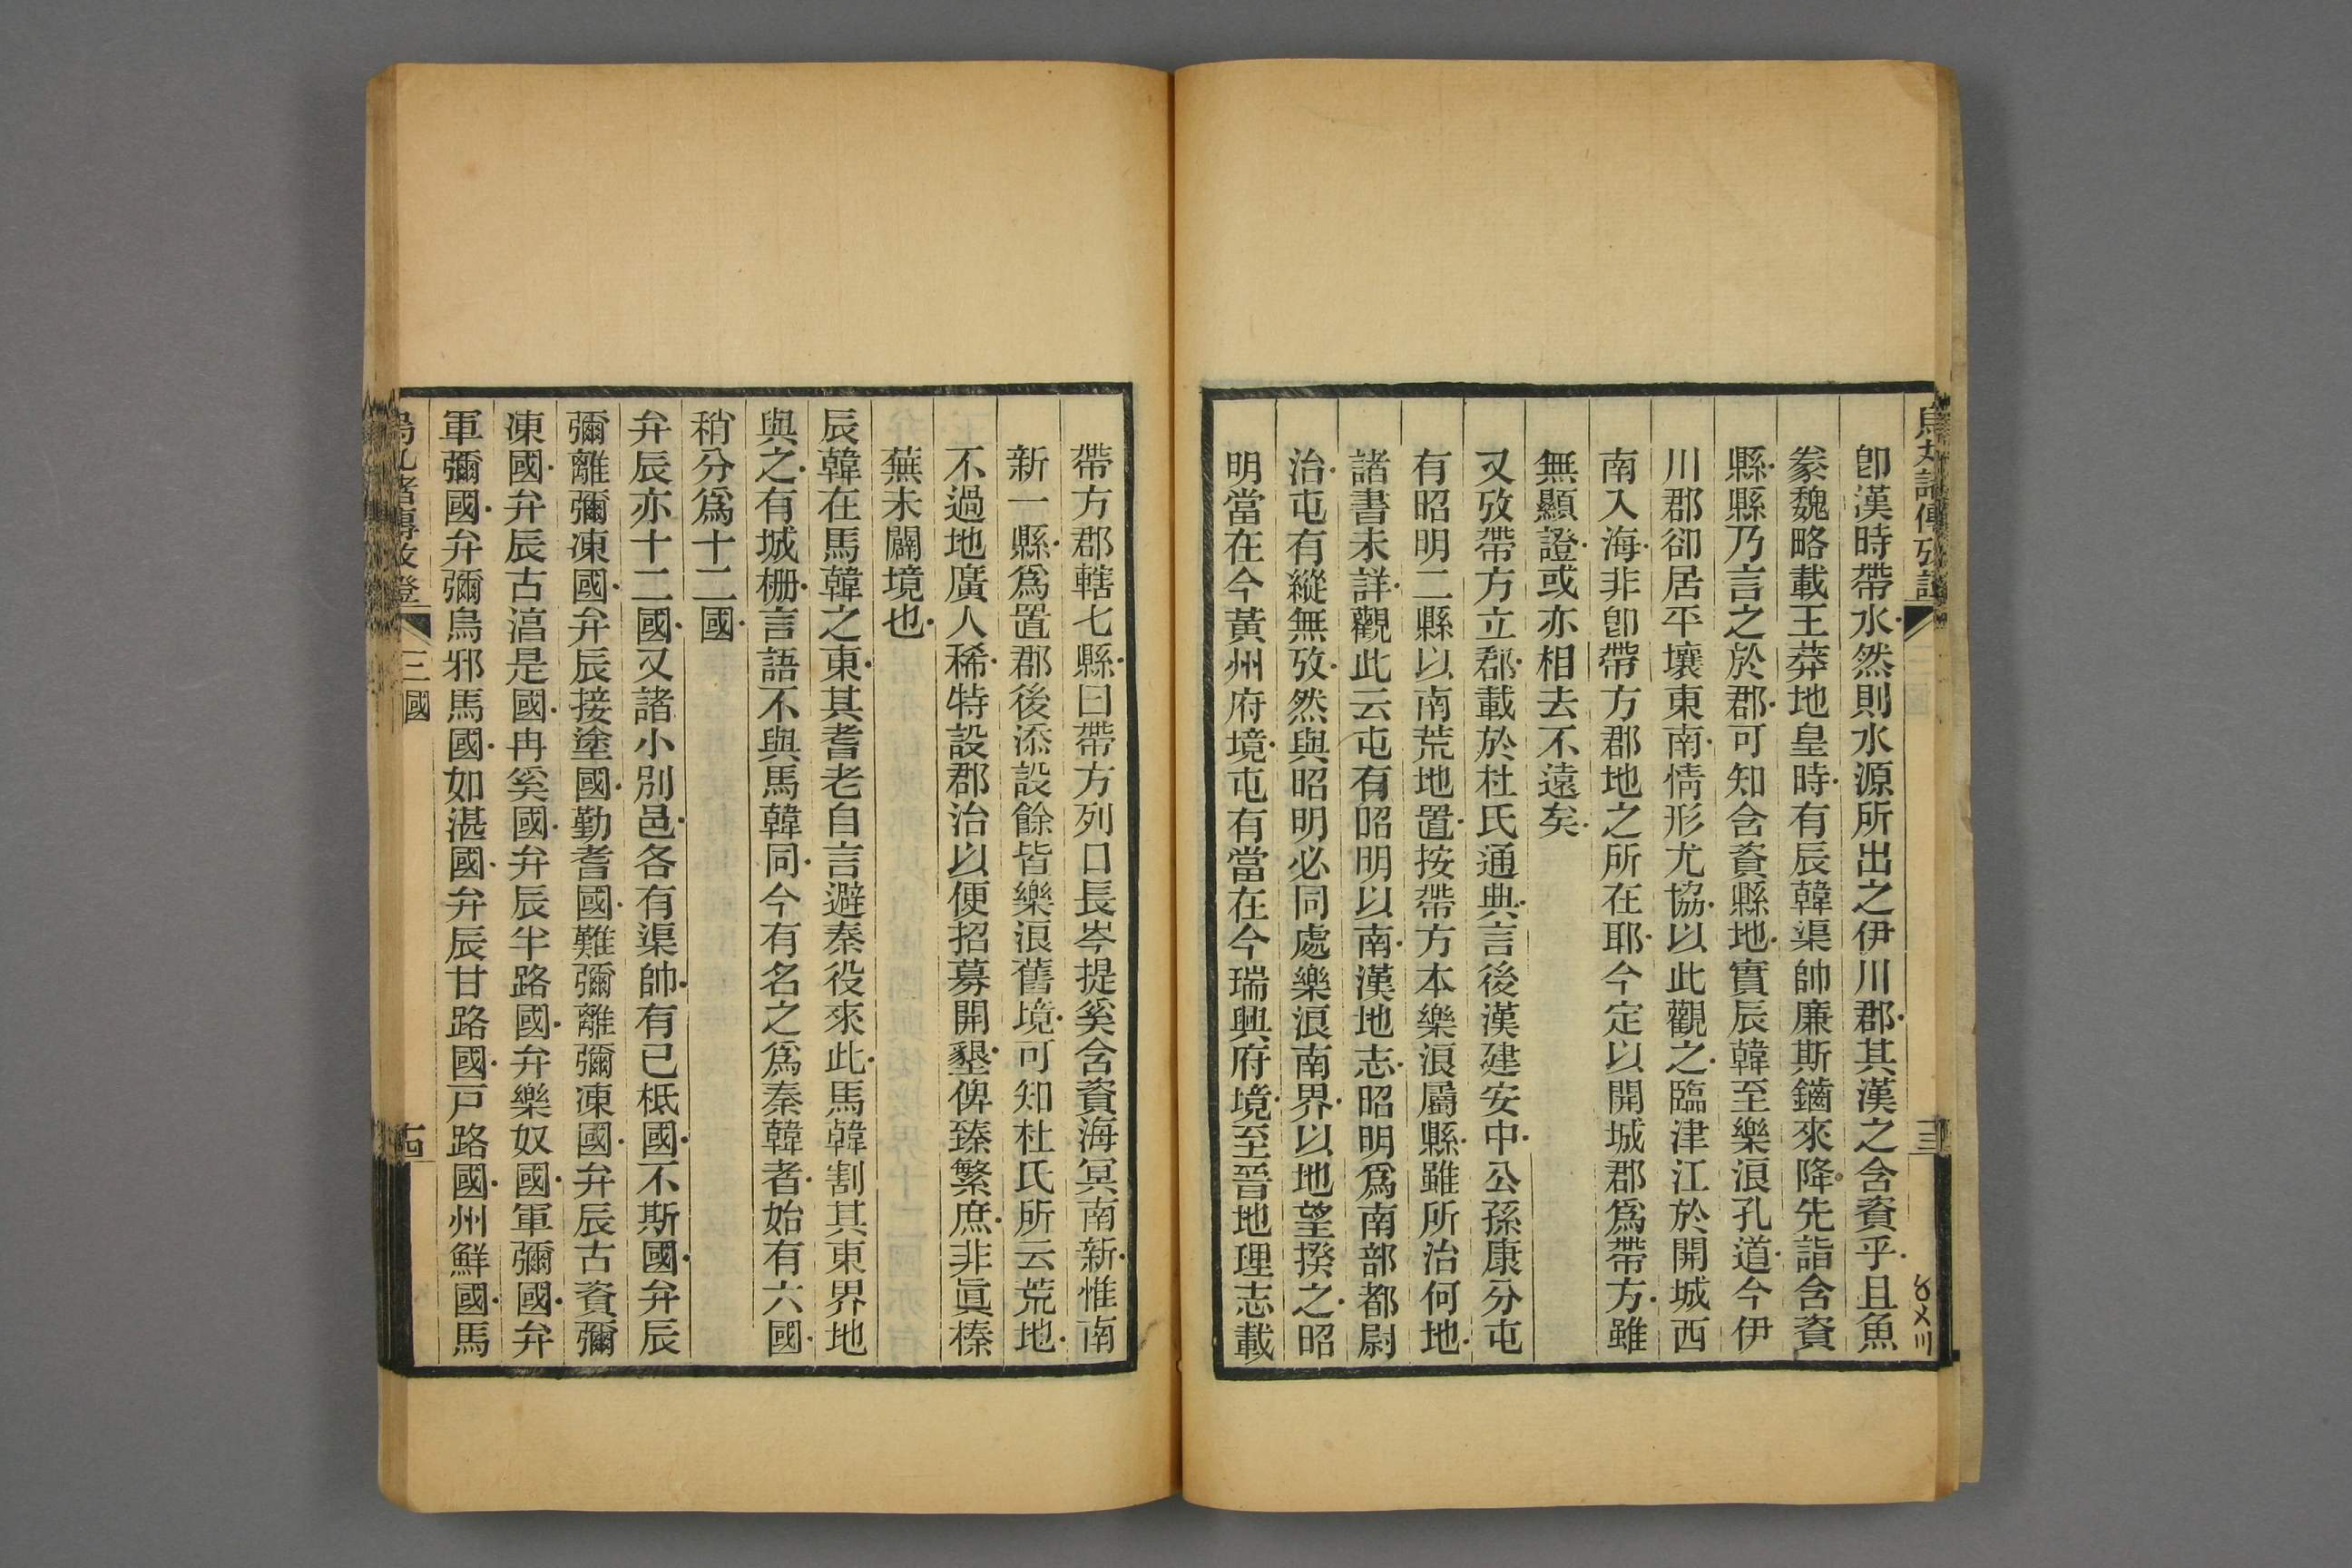 卽漢時帶水然則水源所出之伊川郡其漢之含資乎且魚
豢魏略載王莽地皇時有辰韓渠帥廉斯鑡來降先詣含資
縣縣乃言之於郡可知含資縣地實辰韓至樂浪孔道今伊
川郡卻居平壤東南情形尤協以此觀之臨津江於開城西
南入海非卽帶方郡地之所在耶今定以開城郡爲帶方雖
無顯證或亦相去不遠矣
又攷帶方立郡載於杜氏通典言後漢建安中公孫康分屯
有昭明二縣以南荒地置按帶方本樂浪屬縣雖所治何地
諸書未詳觀此云屯有昭明以南漢地志昭明爲南部都尉
治屯有縱無攷然與昭明必同處樂浪南界以地望揆之昭
明當在今黃州府境屯有當在今瑞興府境至晉地理志載
帶方郡轄七縣曰帶方列口長岑提奚含資海冥南新惟南
新一縣爲置郡後添設餘皆樂浪舊境可知杜氏所云荒地
不過地廣人稀特設郡治以便招募開墾俾臻繁庶非眞榛
蕪未闢境也
辰韓在馬韓之東其耆老自言避秦役來此馬韓割其東界地
與之有城柵言語不與馬韓同今有名之爲秦韓者始有六國
稍分爲十二國
弁辰亦十二國又諸小別邑各有渠帥有已柢國不斯國弁辰
彌離彌凍國弁辰接塗國勤耆國難彌離彌凍國弁辰古資彌
凍國弁辰古淊是國冉奚國弁辰半路國弁樂奴國軍彌國弁
軍彌國弁彌烏邪馬國如湛國弁辰甘路國戸路國州鮮國馬
三國
十四